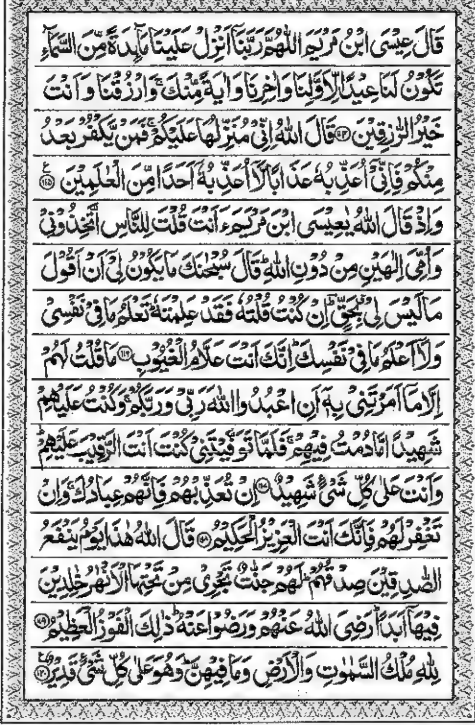 قَالَ عِيۡسَى ابۡنُ مَرۡيَمَ اللّٰهُمَّ رَبَّنَاۤ اَنۡزِلۡ عَلَيۡنَا مَآئِدَةً مِّنَ السَّمَآءِ
تَكُوۡنُ لَنَا عِيۡدًا لِّاَوَّلِنَا وَاٰخِرِنَا وَاٰيَةً مِّنۡكَ‌ۚ وَارۡزُقۡنَا وَاَنۡتَ
خَيۡرُ الرّٰزِقِيۡنَ ﴿۱۱۴﴾ قَالَ اللّٰهُ اِنِّىۡ مُنَزِّلُهَا عَلَيۡكُمۡ‌ۚ فَمَنۡ يَّكۡفُرۡ بَعۡدُ
مِنۡكُمۡ فَاِنِّىۡۤ اُعَذِّبُهٗ عَذَابًا لَّاۤ اُعَذِّبُهٗۤ اَحَدًا مِّنَ الۡعٰلَمِيۡنَ ﴿۱۱۵﴾
وَاِذۡ قَالَ اللّٰهُ يٰعِيۡسَى ابۡنَ مَرۡيَمَ ءَاَنۡتَ قُلۡتَ لِلنَّاسِ اتَّخِذُوۡنِىۡ
وَاُمِّىَ اِلٰهَيۡنِ مِنۡ دُوۡنِ اللّٰهِ‌ؕ قَالَ سُبۡحٰنَكَ مَا يَكُوۡنُ لِىۡۤ اَنۡ اَقُوۡلَ
مَا لَيۡسَ لِىۡ بِحَقٍّ‌ؕ اِنۡ كُنۡتُ قُلۡتُهٗ فَقَدۡ عَلِمۡتَهٗ‌ؕ تَعۡلَمُ مَا فِىۡ نَفۡسِىۡ
وَلَاۤ اَعۡلَمُ مَا فِىۡ نَفۡسِكَ‌ؕ اِنَّكَ اَنۡتَ عَلَّامُ الۡغُيُوۡبِ ﴿۱۱۶﴾ مَا قُلۡتُ لَهُمۡ
اِلَّا مَاۤ اَمَرۡتَنِىۡ بِهٖۤ اَنِ اعۡبُدُوا اللّٰهَ رَبِّىۡ وَرَبَّكُمۡ‌ۚ وَكُنۡتُ عَلَيۡهِمۡ
شَهِيۡدًا مَّا دُمۡتُ فِيۡهِمۡ‌ۚ فَلَمَّا تَوَفَّيۡتَنِىۡ كُنۡتَ اَنۡتَ الرَّقِيۡبَ عَلَيۡهِمۡ‌ؕ
وَاَنۡتَ عَلٰى كُلِّ شَىۡءٍ شَهِيۡدٌ ﴿۱۱۷﴾ اِنۡ تُعَذِّبۡهُمۡ فَاِنَّهُمۡ عِبَادُكَ‌ۚ وَاِنۡ
تَغۡفِرۡ لَهُمۡ فَاِنَّكَ اَنۡتَ الۡعَزِيۡزُ الۡحَكِيۡمُ ﴿۱۱۸﴾ قَالَ اللّٰهُ هٰذَا يَوۡمُ يَنۡفَعُ
الصّٰدِقِيۡنَ صِدۡقُهُمۡ‌ؕ لَهُمۡ جَنّٰتٌ تَجۡرِىۡ مِنۡ تَحۡتِهَا الۡاَنۡهٰرُ خٰلِدِيۡنَ
فِيۡهَاۤ اَبَدًا‌ؕ رَضِىَ اللّٰهُ عَنۡهُمۡ وَرَضُوۡا عَنۡهُ‌ؕ ذٰلِكَ الۡفَوۡزُ الۡعَظِيۡمُ ﴿۱۱۹﴾
لِلّٰهِ مُلۡكُ السَّمٰوٰتِ وَالۡاَرۡضِ وَمَا فِيۡهِنَّ‌ؕ وَهُوَ عَلٰى كُلِّ شَىۡءٍ قَدِيۡرٌ ﴿۱۲۰﴾